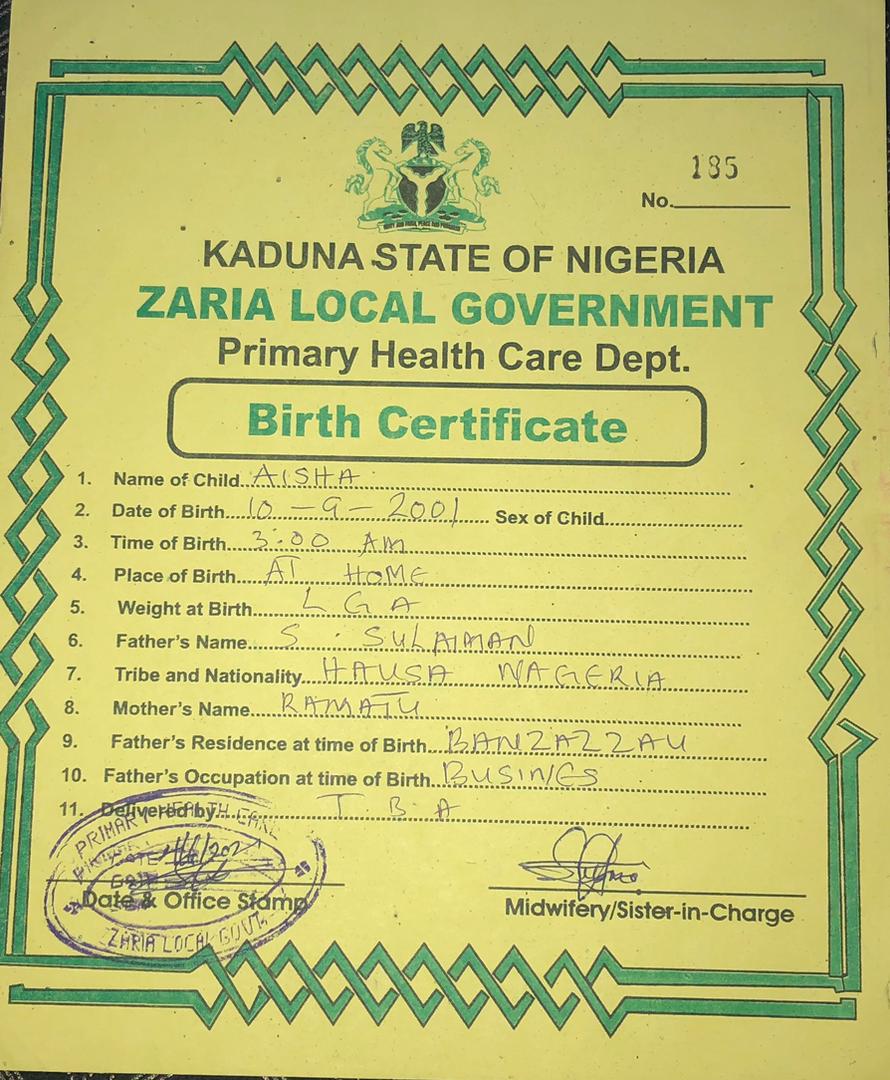 185
No.
KADUNA STATE OF NIGERIA
ZARIA LOCAL GOVERNMENT
Primary Health Care Dept.
Birth Certificate
1. Name of Child AISHA
2. Date of Birth 10 - 9 - 2001 Sex of Child
3. Time of Birth 3:00 AM
4. Place of Birth AT HOME
5. Weight at Birth L G A
6. Father's Name S. SULAIMAN
7. Tribe and Nationality HAUSA NAGERIA
8. Mother's Name RAMATU
9. Father's Residence at time of Birth BANZAZZAU
10. Father's Occupation at time of Birth BUSINES
11. Delivered by T B A
PRIMARY HEALTH CARE
ZARIA LOCAL GOVT.
Date & Office Stamp
Midwifery/Sister-in-Charge